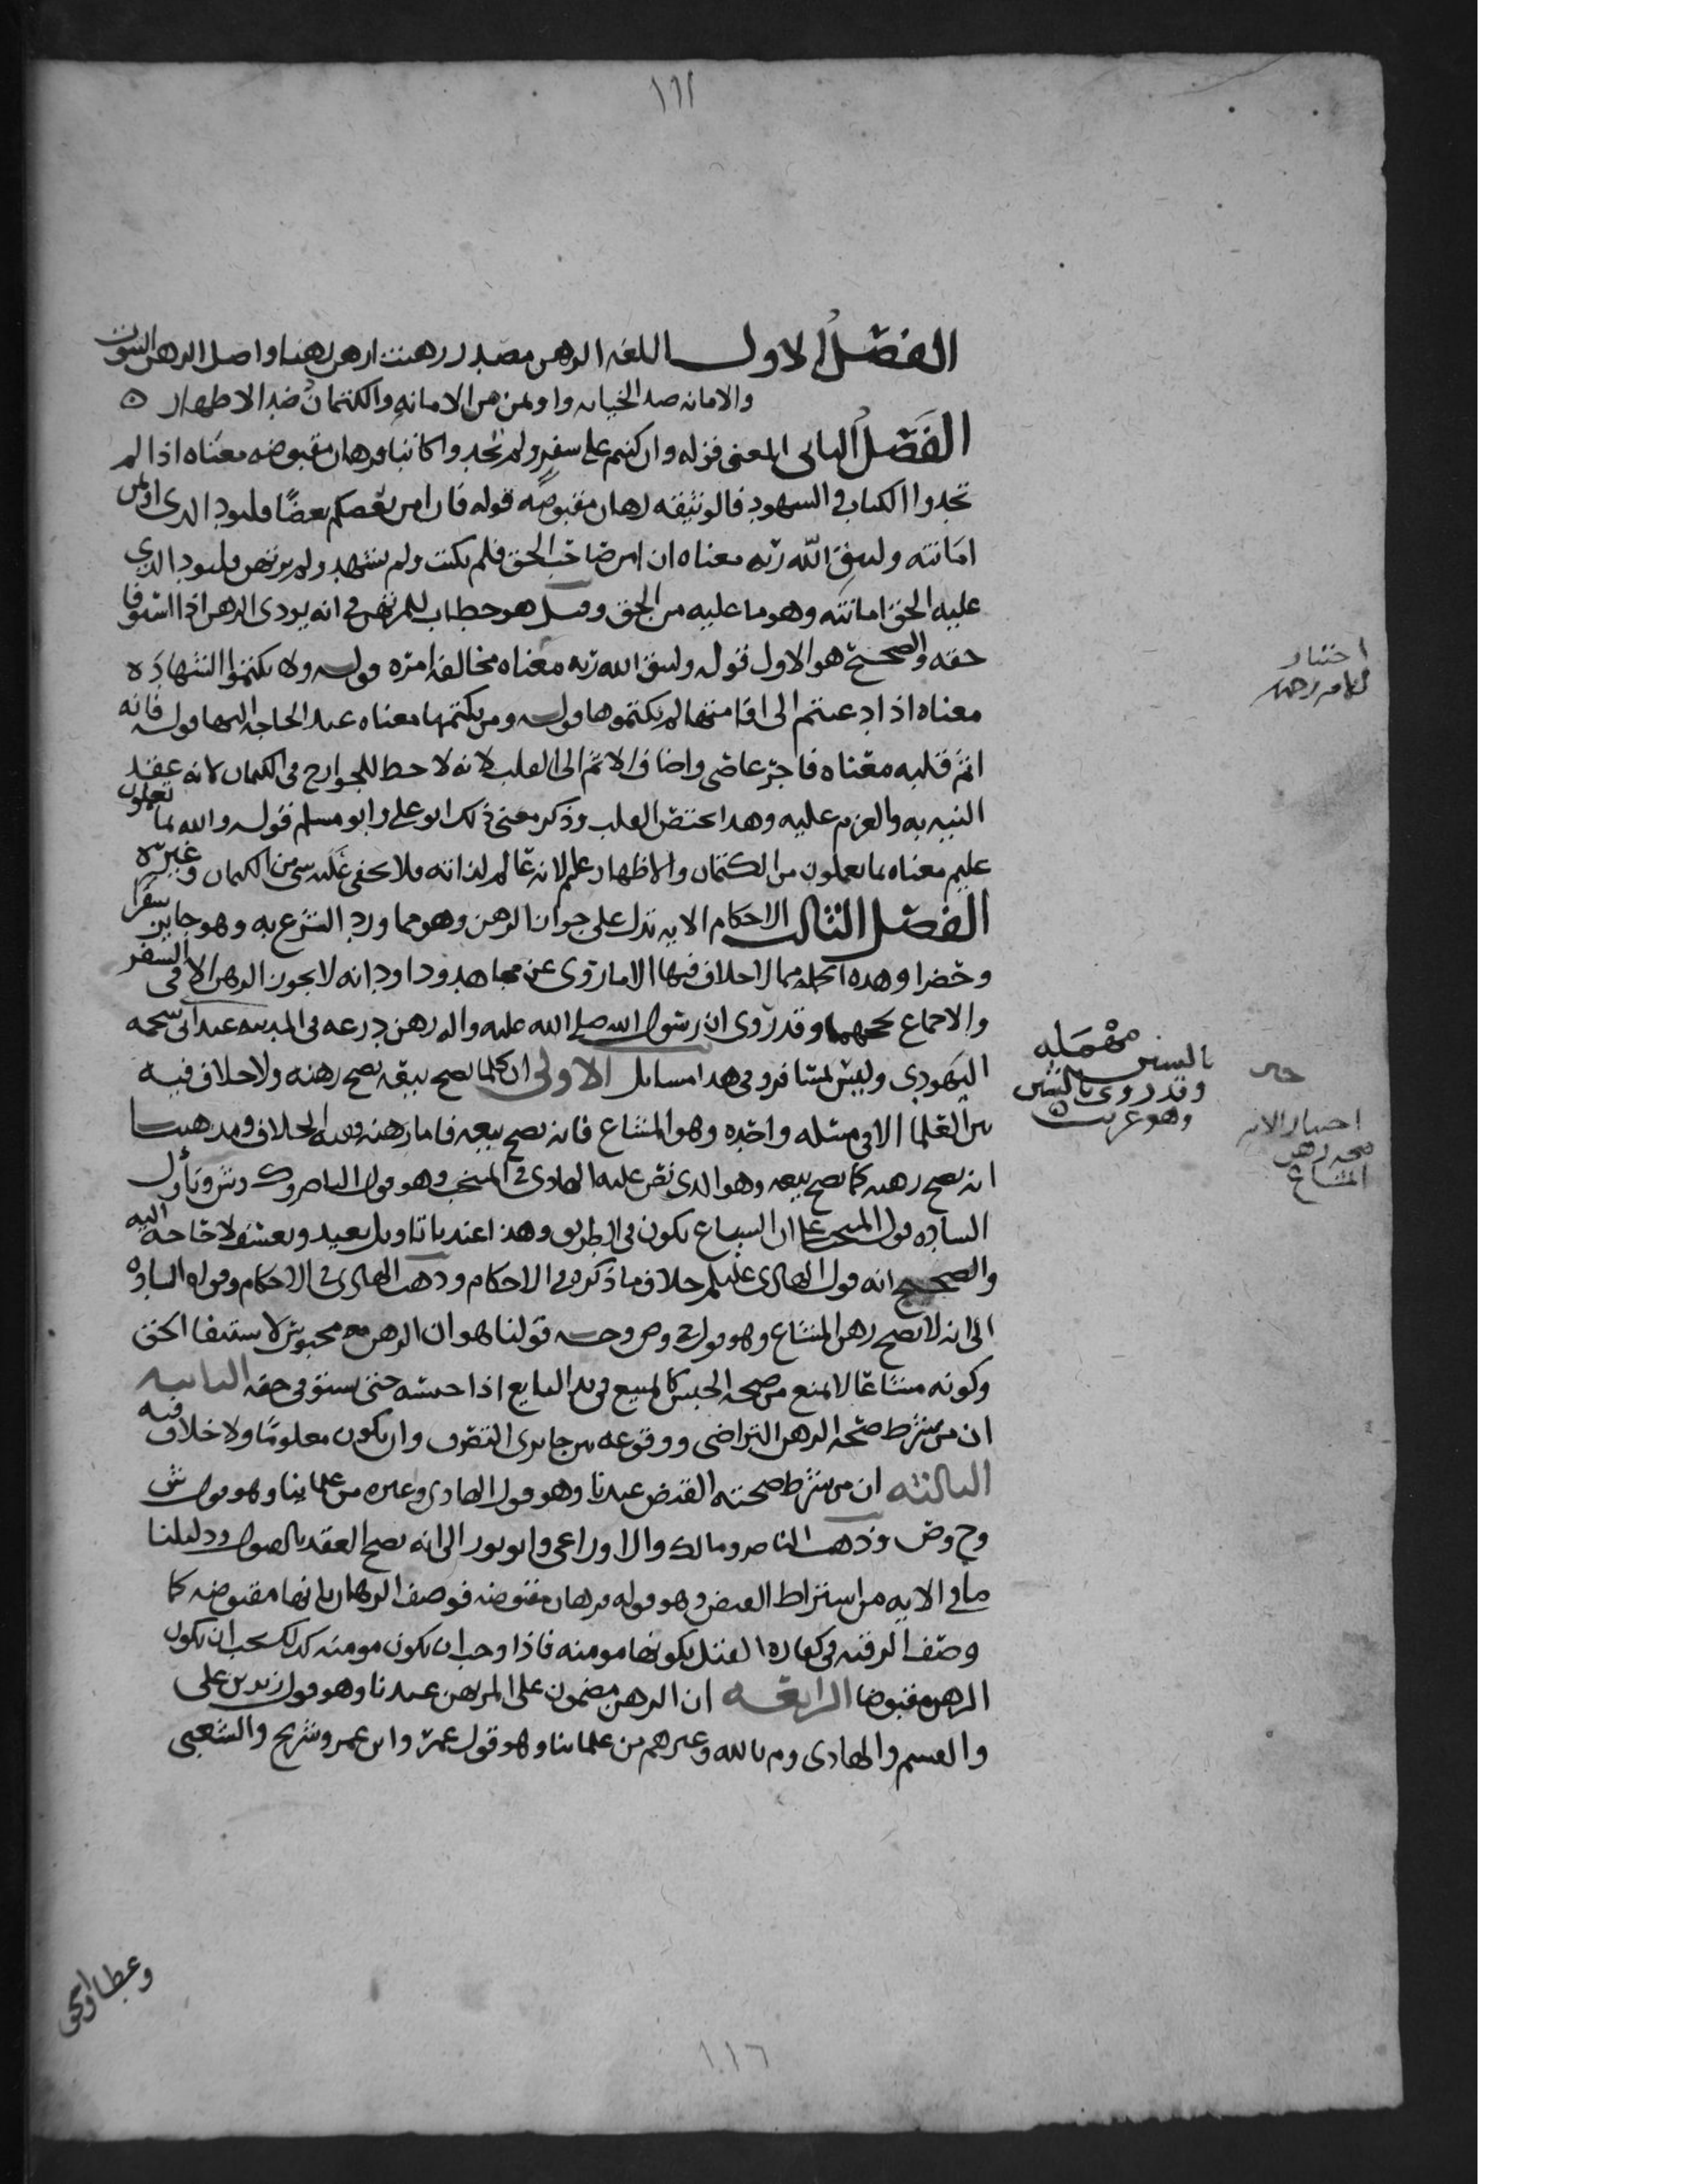 ١١٦
الفصل الاول اللغه الرهن مصدر رهنت ارهن رهنا واصل الرهن الثبوت
والامانه ضد الخيانه واوتمن من الامانه والكتمان ضد الاظهار ه
الفصل الثانى المعنى قوله وان كنتم على سفر ولم تجدوا كاتبا فرهان مقبوضه معناه اذا لم
تجدوا الكتاب والشهود فالوثيقه رهان مقبوضه قوله فان امن بعضكم بعضًا فليود الذى اوتمن
امانته وليتق الله ربه معناه ان امن صاحب الحق فلم يكتب ولم يشهد ولم يرتهن فليود الذى
عليه الحق امانته وهو ما عليه من الحق وقيل هو خطاب للمرتهن فى انه يودى الرهن اذا استوفا
حقه والصحيح هو الاول قوله وليتق الله ربه معناه مخالفه امره قوله ولا تكتموا الشهاده
معناه اذا دعيتم الى اقامتها لم تكتموها قوله ومن يكتمها معناه عند الحاجه اليها قوله فانه
اثم قلبه معناه فاجر عاصى واضاف الاثم الى القلب لانه لا حظ للجوارح فى الكتمان لانه عقد
النيه به والعزم عليه وهذا يختص القلب وذكر معنى ذلك ابو على وابو مسلم قوله والله بما تعملون
عليم معناه بما تعملون من الكتمان والاظهار عليم لانه عالم لذاته فلا يخفى عليه شى من الكتمان وغيره
الفصل الثالث الاحكام الايه تدل على جواز الرهن وهو مما ورد الشرع به وهو جايز سفرا
وحضرا وهذه الجمله مما لا خلاف فيها الا ما روى عن مجاهد وداود انه لا يجوز الرهن الا فى السفر
والاجماع يحجهما وقد روى ان رسول الله صلى الله عليه واله رهن درعه فى المدينه عند ابى سحمه
اليهودى وليس بمسافر وفى هذا مسايل الاولى ان كلما يصح بيعه يصح رهنه ولا خلاف فيه
بين العلما الا فى مسئله واحده وهو المشاع فانه يصح بيعه فاما رهنه ففيه الخلاف ومذهبنا
انه يصح رهنه كما يصح بيعه وهو الذى نص عليه الهادى فى المنتخب وهو قول الناصر وك وش وتأول
الساده قول المنتخب على ان الشياع يكون فى الطريق وهذا عندنا تاويل بعيد وتعسف لا حاجه اليه
والصحيح انه قول الهادى عليلم خلاف ما ذكره فى الاحكام وذهب الهادى فى الاحكام وقواه الساده
الى انه لا يصح رهن المشاع وهو قول ح وص وجه قولنا هو ان الرهن محبوس لاستيفا الحق
وكونه مشاعًا لا يمنع من صحه الحبس كالمبيع فى يد البايع اذا حبسه حتى يستوفى حقه الثانيه
ان من شرط صحه الرهن التراضى ووقوعه من جايزى التصرف وان يكون معلومًا ولا خلاف فيه
الثالثه ان من شرط صحته القبض عندنا وهو قول الهادى وغيره من علماينا وهو قول ش
وح وص وذهب الناصر ومالك والاوزاعى وابو ثور الى انه يصح العقد بالقول ودليلنا
ما فى الايه من اشتراط القبض وهو قوله فرهان مقبوضه فوصف الرهان بانها مقبوضه كما
وصف الرقبه فى كفاره القتل بكونها مومنه فاذا وجب ان تكون مومنه كذلك يجب ان يكون
الرهن مقبوضا الرابعه ان الرهن مضمون على المرتهن عندنا وهو قول زيد بن على
والقسم والهادى وم بالله وغيرهم من علماينا وهو قول عمر وابن عمر وشريح والشعبى
وعطا
اختيار
حى
بالسين مهمله
وقد روى بالشين
وهو غريب
اختيار الامير
صحه رهن
المشاع
١١٦